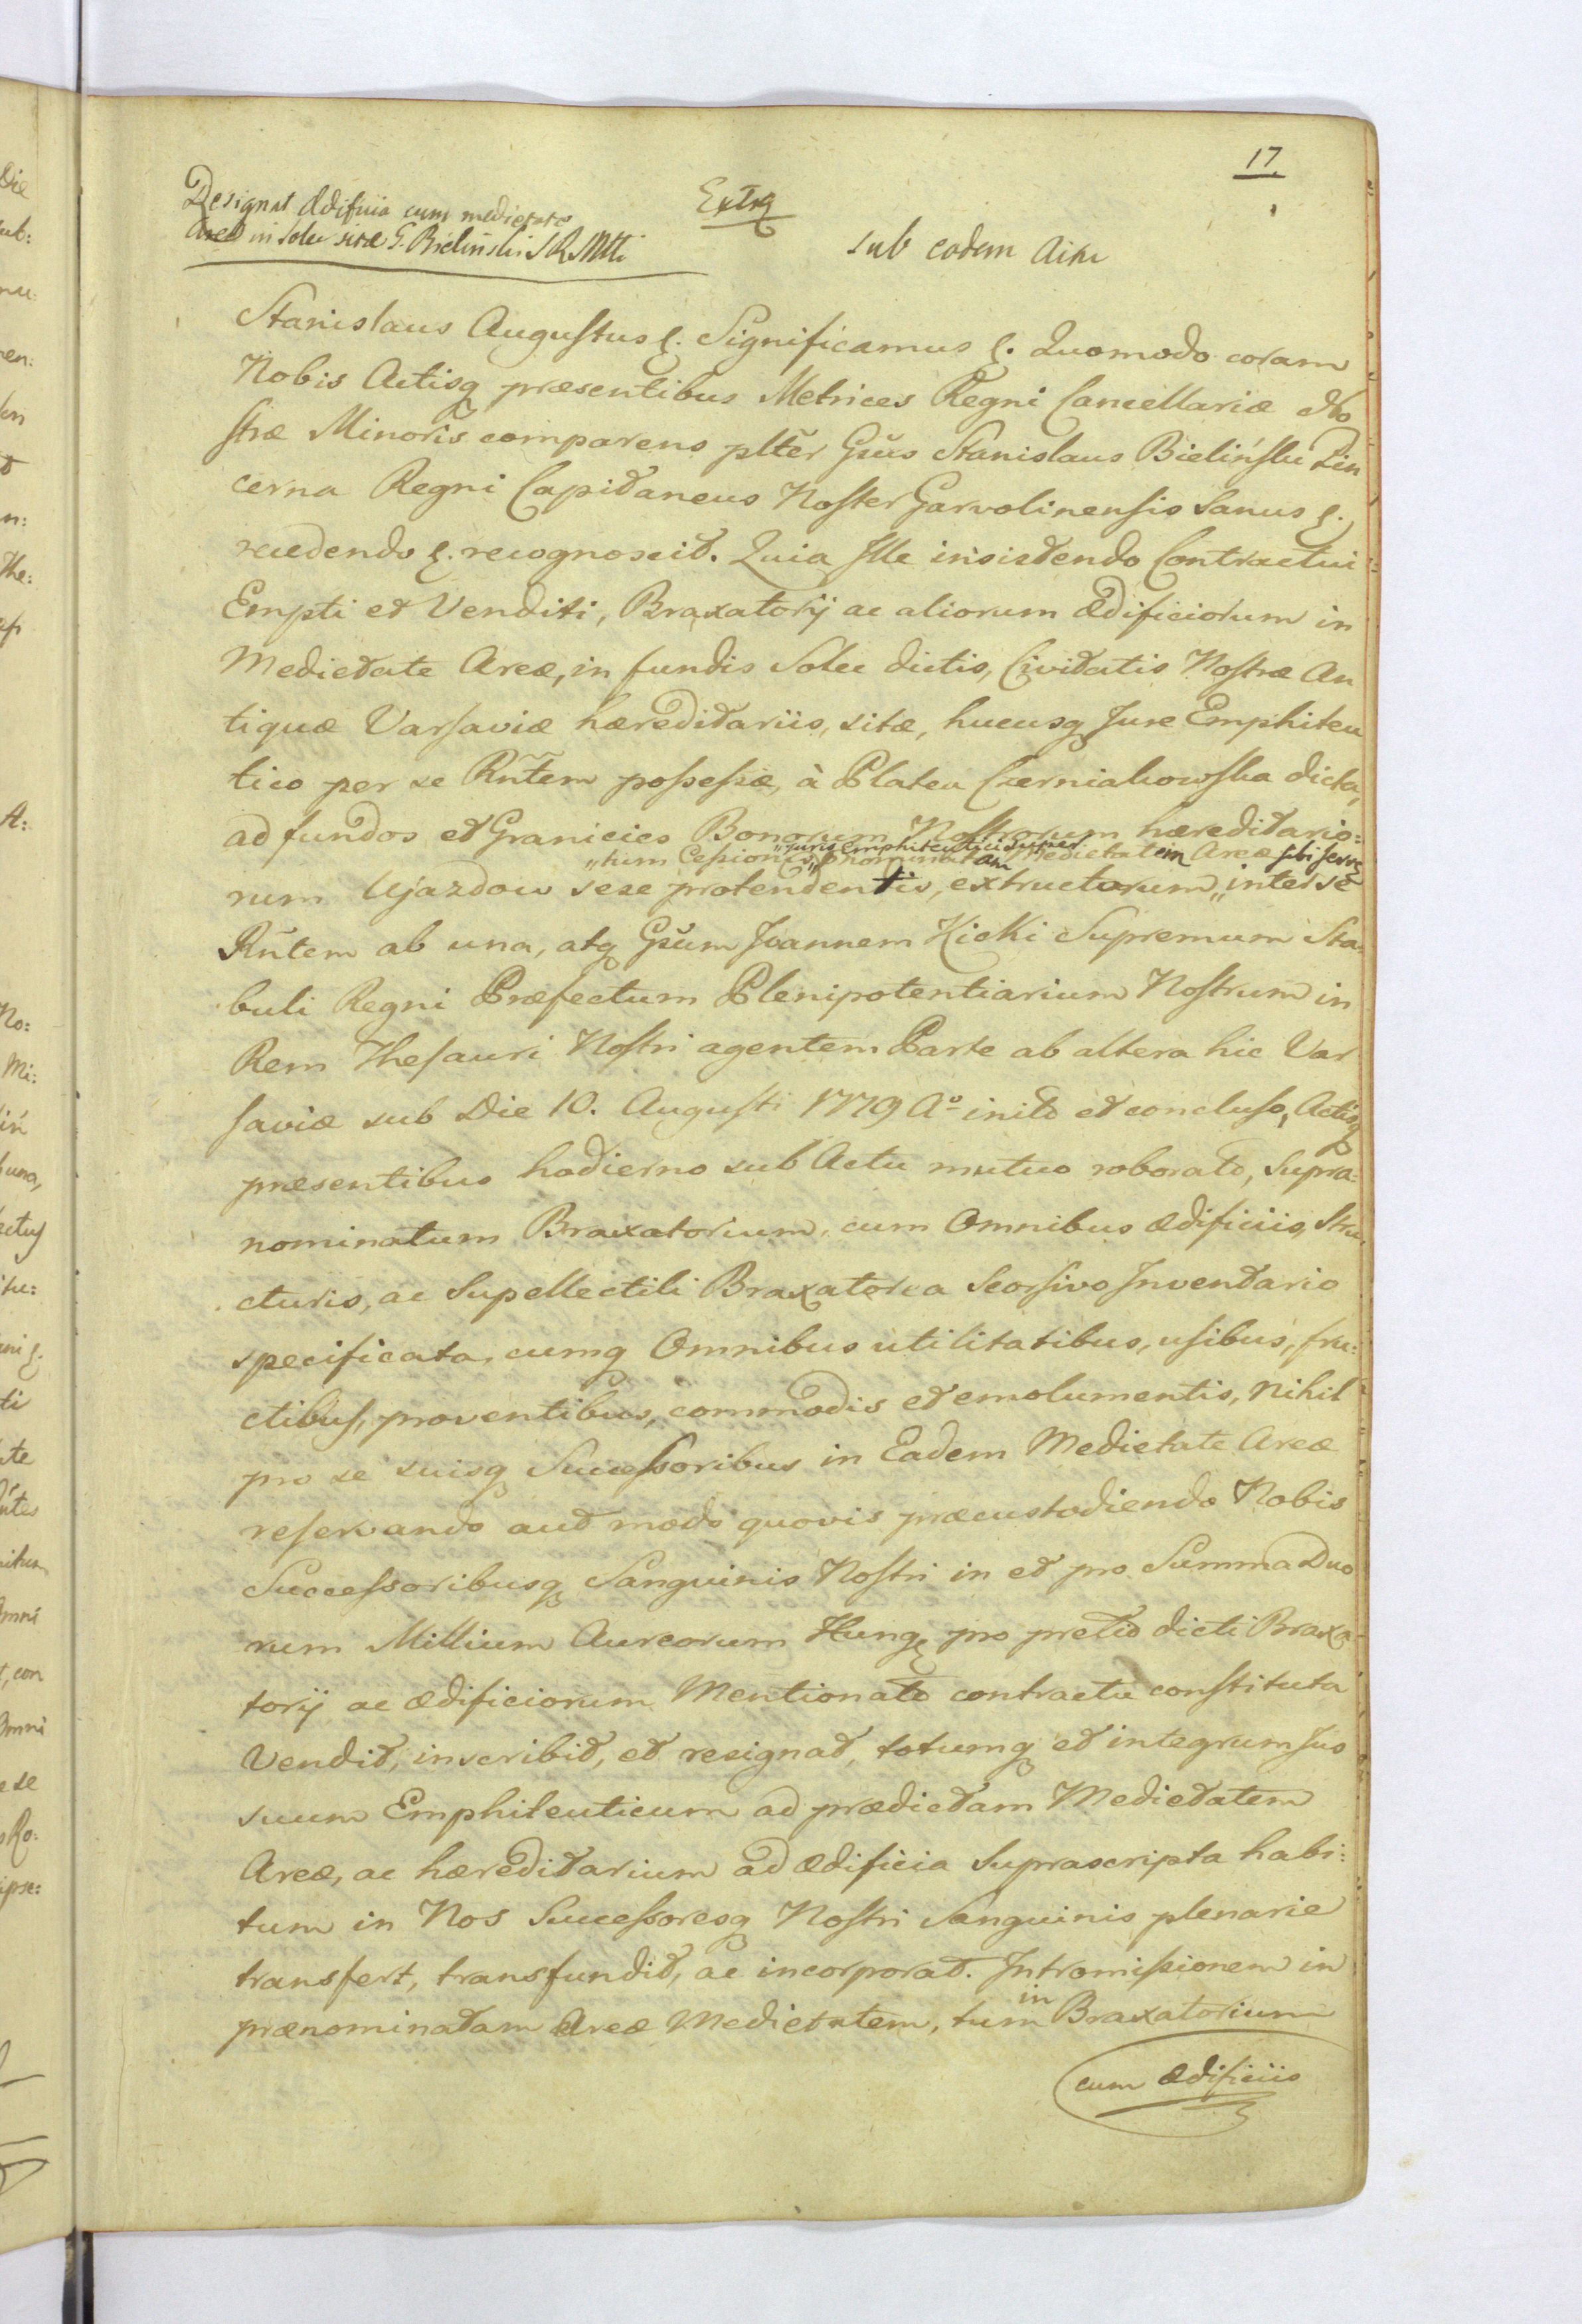 17.
Resignat Ædificia cum medietate
Areæ in Solec sitæ G. Bieliński S R Mtti
Extrq
sub eodem Actu
Stanislaus Augustus &. Significamus &. Quomodo coram
Nobis Actisq præsentibus Metrices Regni Cancellariæ No
stræ Minoris comparens plter Gsus Stanislaus Bieliński Pin
cerna Regni Capitaneus Noster Garvolinensis Sanus &.
recedendo &. recognoscit. Quia Ille insistendo Contractui
Empti et Venditi, Braxatorij ac aliorum Ædificiorum in
Medietate Areæ, in fundis Solec dictis, Civitatis Nostræ An
tiquæ Varsaviæ hæreditariis, sitæ, hucusq Jure Emphiteu
tico per se Rntem possessæ, à Platea Czerniakowska dicta,
ad fundos et Granicies Bonorum Nostrorum hæreditario:
„juris emphiteutici super
„tum Cessionis, pnominatam Medietatem Areæ sibi serv
rum Ujazdow sese protendentis, extructorum „inter se
Rntem ab una, atq Gsum Joannem Kicki Supremum Sta:
buli Regni Præfectum Plenipotentiarium Nostrum in
Rem Thesauri Nostri agentem Parte ab altera hic Var
saviæ sub Die 10. Augusti 1779 Aº inito et concluso, Actisq
præsentibus hodierno sub Actu mutuo roborato, supra:
nominatum Braxatorium, cum Omnibus ædificiis, stru
cturis, ac Supellectili Braxatorea Seorsivo Inventario
specificata, cumq Omnibus utilitatibus, usibus, fru:
ctibus, proventibus, commodis et emolumentis, nihil
pro se suisq Successoribus in Eadem Medietate Areæ
reservando aut modo quovis præcustodiendo Nobis
Successoribusq Sanguinis Nostri in et pro Summa Duo
rum Millium Aureorum Hung pro pretio dicti Braxa
torij ac ædificiorum Mentionato contractu constituta
Vendit, inscribit, et resignat, totumq et integrum Jus
suum Emphiteuticum ad prædictam Medietatem
Areæ, ac hæreditarium ad ædificia suprascripta habi:
tum in Nos Successoresq Nostri Sanguinis plenarie
transfert, transfundit, ac incorporat. Intromissionem in
prænominatam Areæ Medietatem, tum in Braxatorium
cum ædificiis